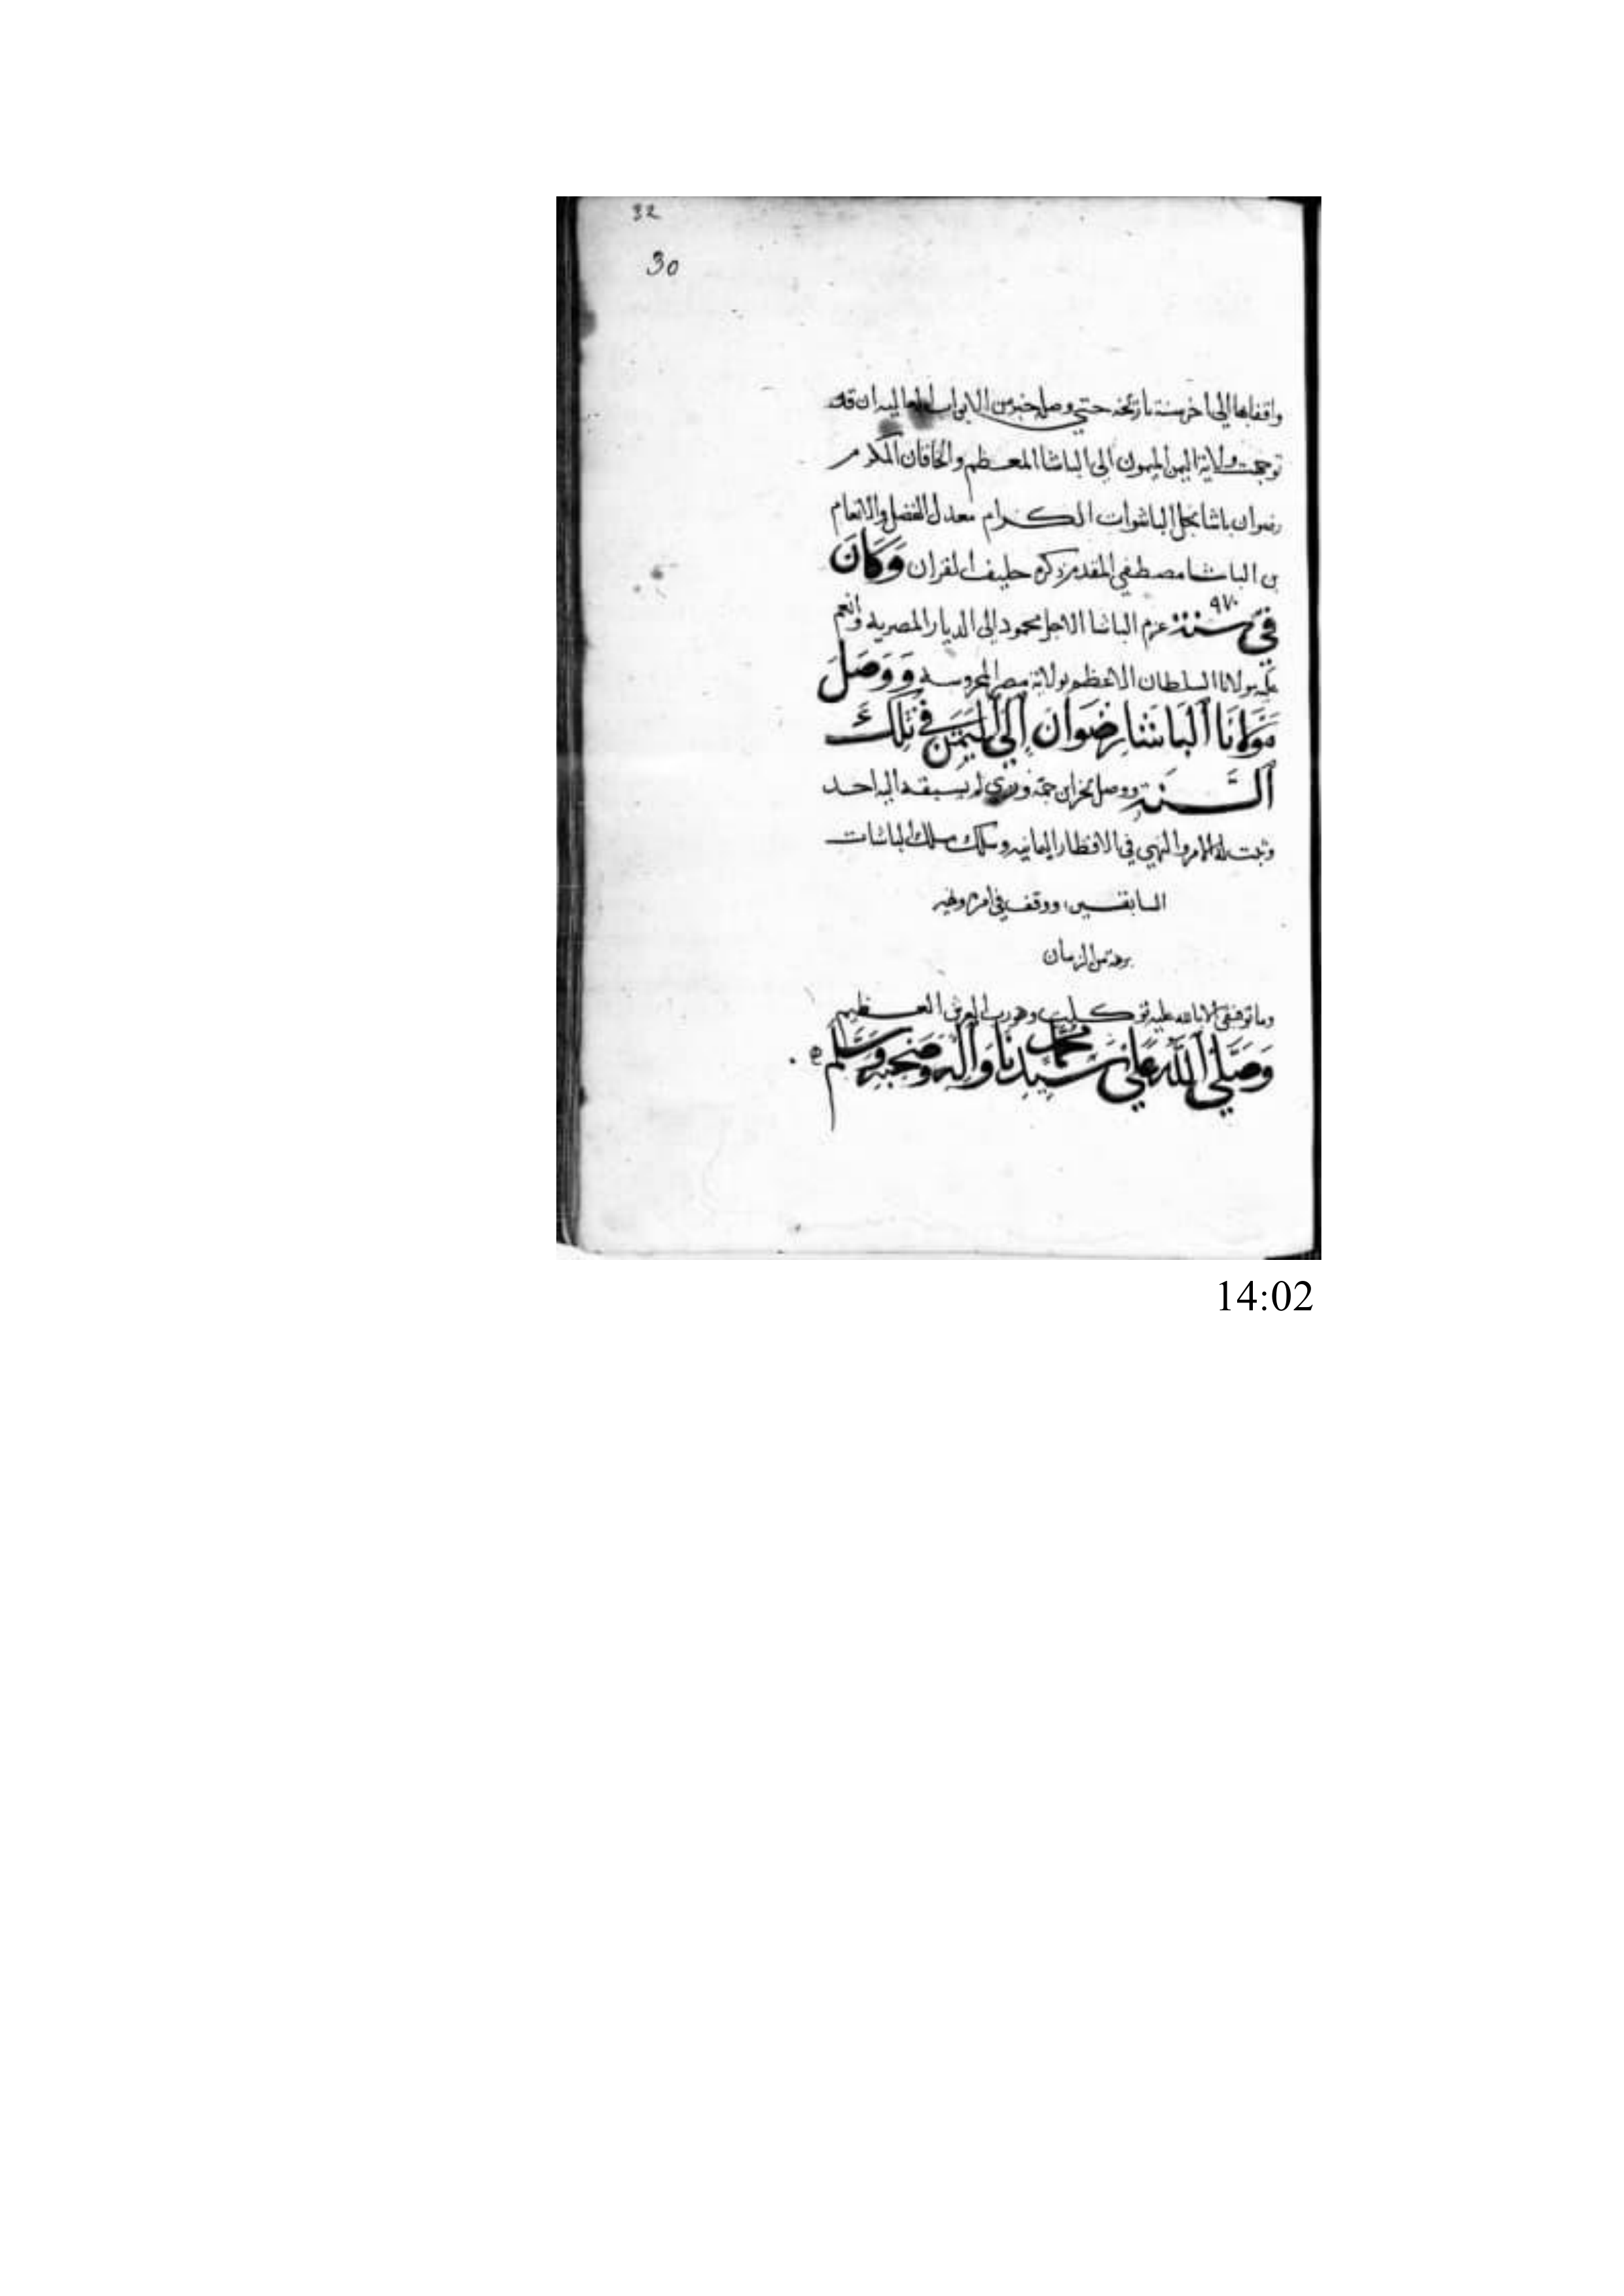 32
30
واقفابها الى اخر سنة تاريخه حتي وصل خبر من الابواب العاليه ان قد
توجهت ولاية اليمن الميمون الى الباشا المعظم والخاقان المكرم
رضوان باشا نجل الباشوات الكرام معدل الفضل والانعام
بن الباشا مصطفي المقدم ذكره حليف القران وَكَانَ
فِي سنة ٩٧٠ عزم الباشا الاجل محمود الى الديار المصريه وانعم
عليه مولانا السلطان الاعظم بولاية مصر المحروسه وَوَصَلَ
مَوْلَانَا الْبَاشَا رِضْوَان إِلَي الْيَمَن فِي تِلْكَ
السَّنَة ووصل بخزاين جمه لم يسبقه اليه احد
وثبت له الامر والنهي في الاقطار اليمانيه وسلك مسلك الباشات
السابقين ووقف في امره ونهيه
برهة من الزمان
وما توفيقي الا بالله عليه توكلت وهو رب العرش العظيم
وَصَلَّي اللَّه عَلَي سَيِّدِنَا مُحَمَّد وَآلِه وَصَحْبِه وَسَلَّم
14:02